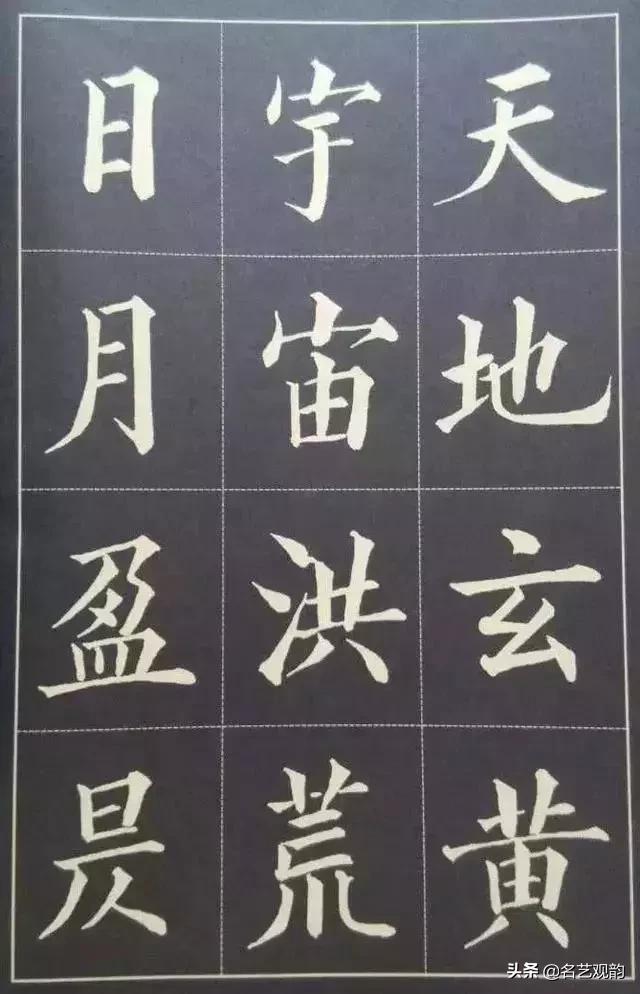 天地玄黄
宇宙洪荒
日月盈昃
头条 @名艺观韵